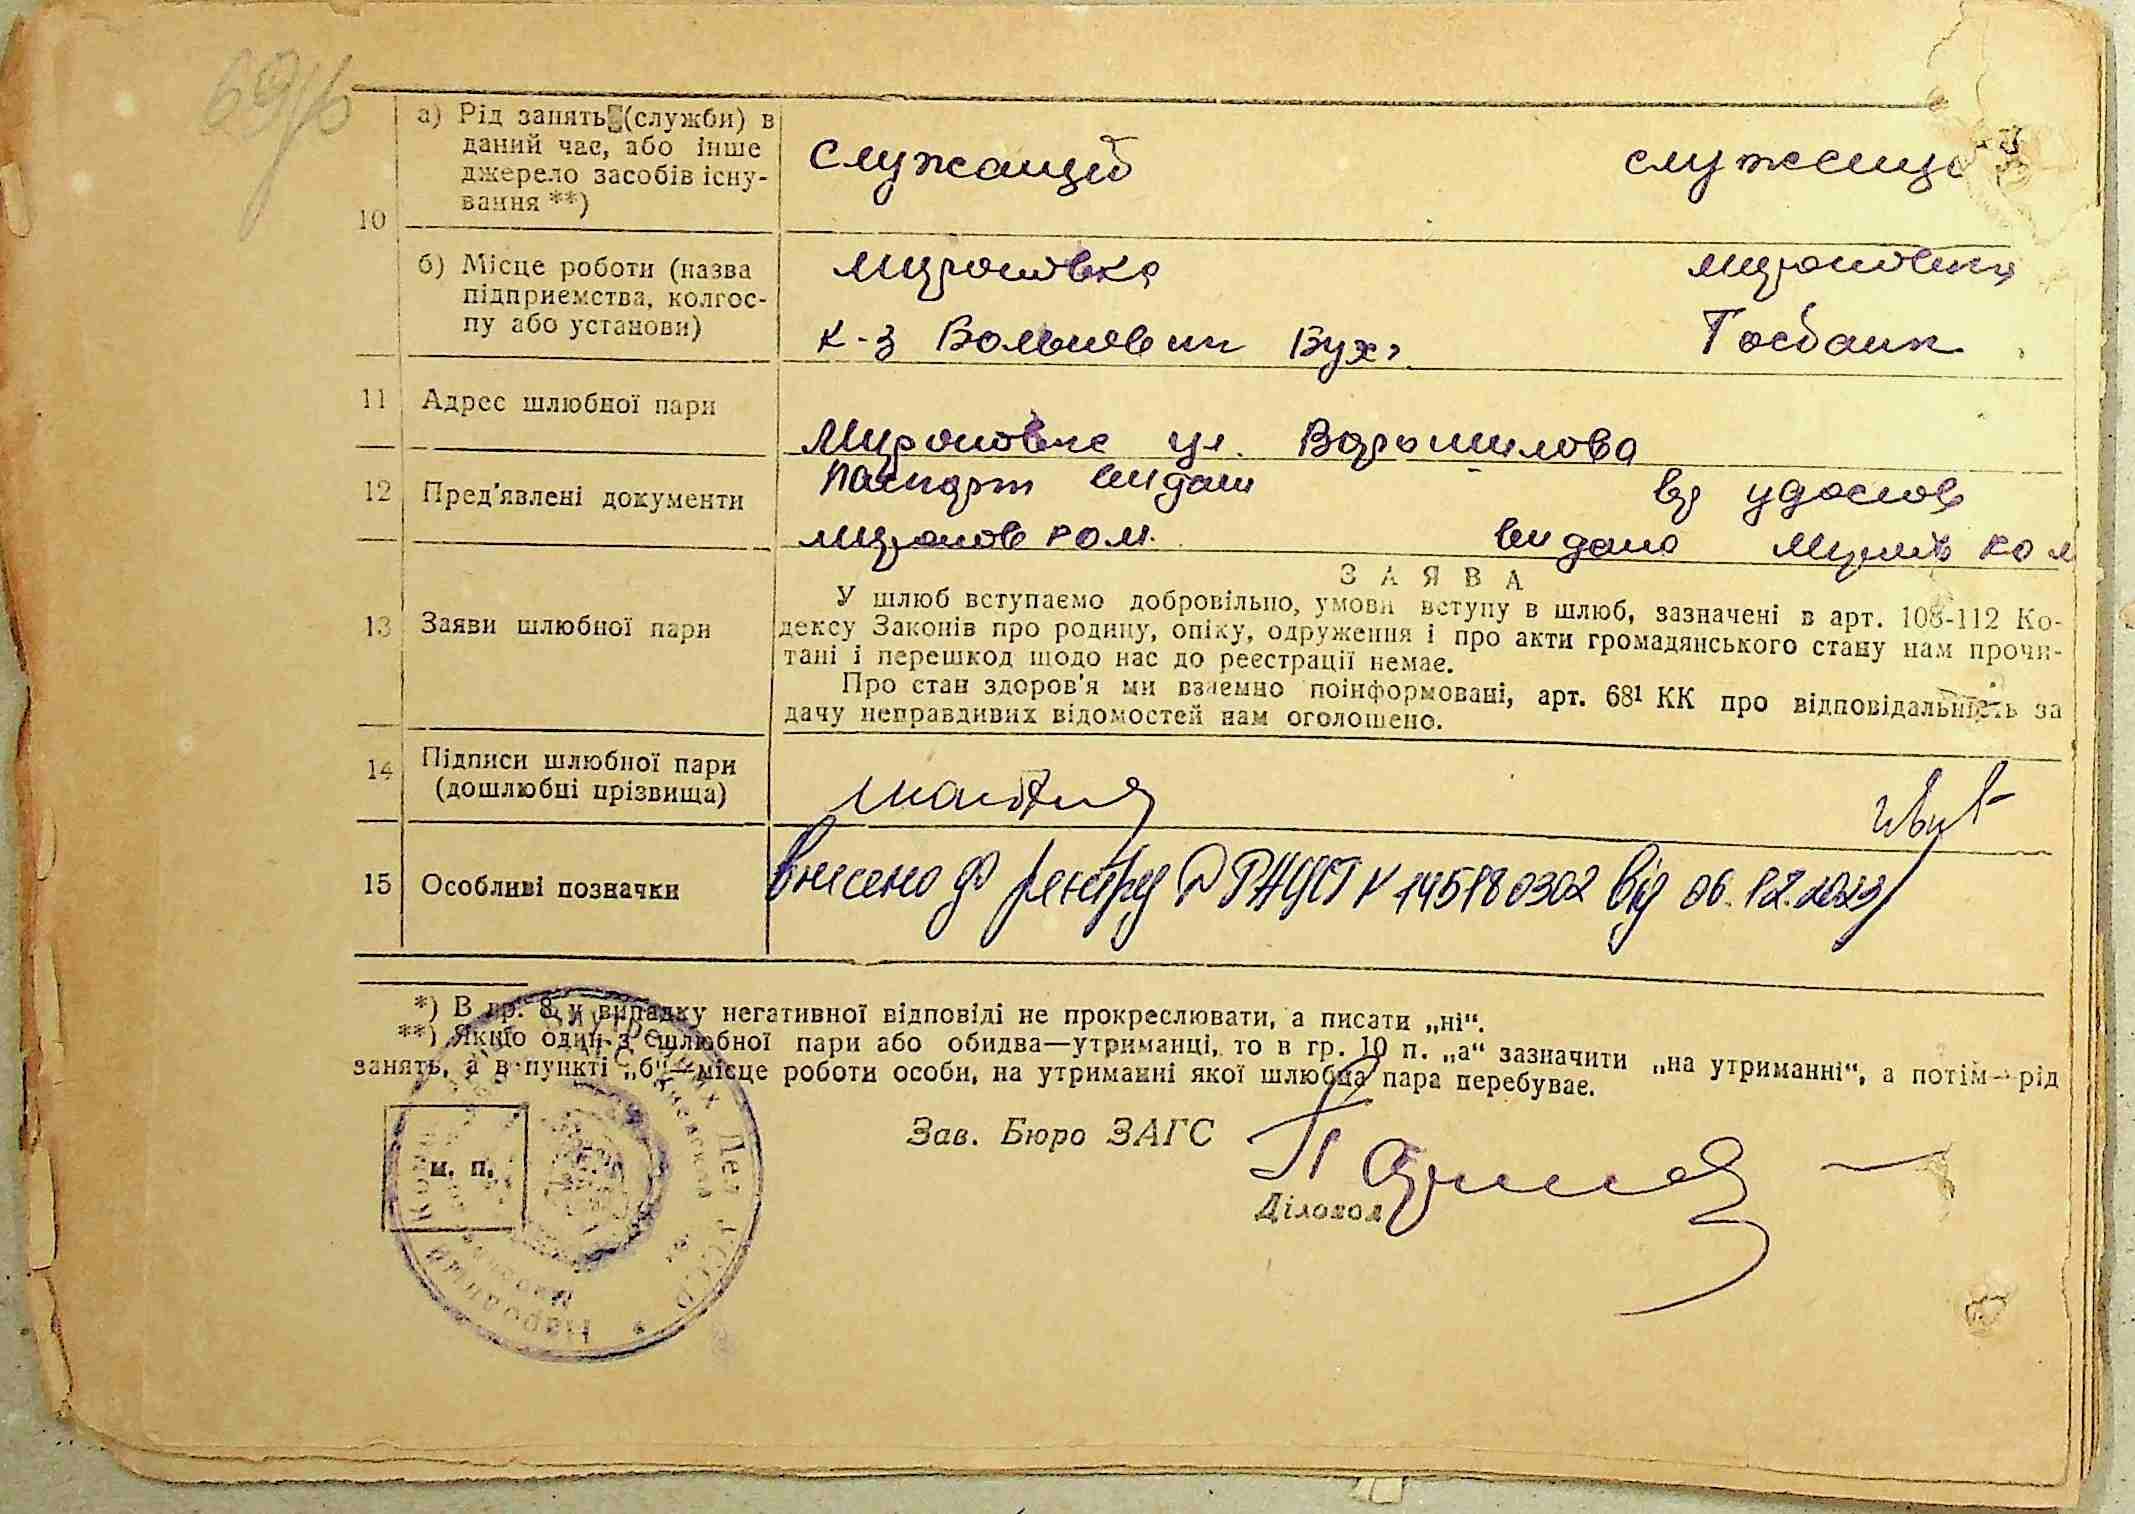 69
а) Рід занять (служби) в
даний час, або інше
джерело засобів існу-
вання **)
10
служащий
служаща
б) Місце роботи (назва
підприємства, колгос-
пу або установи)
Мироновка
к-з Большевик Бух.
Госбанк
11 Адрес шлюбної пари
Мироновка ул. Ворошилова
12 Пред'явлені документи
паспорт видан
видано
13 Заяви шлюбної пари
ЗАЯВА
У шлюб вступаємо добровільно, умови вступу в шлюб, зазначені в арт. 108-112 Ко-
дексу Законів про родину, опіку, одруження і про акти громадянського стану нам прочи-
тані і перешкод щодо нас до реєстрації немає.
Про стан здоров'я ми взаємно поінформовані, арт. 68¹ КК про відповідальність за
дачу неправдивих відомостей нам оголошено.
14 Підписи шлюбної пари
(дошлюбні прізвища)
15 Особливі позначки
внесено до реєстру ДРАЦСГ № 145180302 від 06.12.2023
*) В гр. 8 у випадку негативної відповіді не прокреслювати, а писати „ні“.
**) Якщо один з шлюбної пари або обидва—утриманці, то в гр. 10 п. „а“ зазначити „на утриманні“, а потім—рід
занять, а в пункті „б“—місце роботи особи, на утриманні якої шлюбна пара перебуває.
м. п.
Зав. Бюро ЗАГС
Діловод